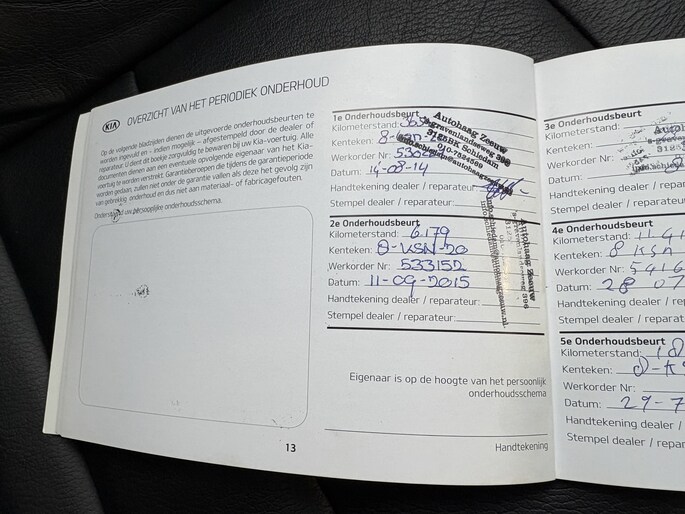 KIA OVERZICHT VAN HET PERIODIEK ONDERHOUD
Op de volgende bladzijden dienen de uitgevoerde onderhoudsbeurten te
worden ingevuld en - indien mogelijk - afgestempeld door de dealer of
reparateur. U dient dit boekje zorgvuldig te bewaren bij uw Kia-voertuig. Alle
documenten dienen aan een eventuele opvolgende eigenaar van het Kia-
voertuig te worden verstrekt. Garantieberoepen die tijdens de garantieperiode
worden gedaan, zullen niet onder de garantie vallen als deze het gevolg zijn
van gebrekkig onderhoud en dus niet aan materiaal- of fabricagefouten.
Onderstaand uw persoonlijke onderhoudsschema.
13
1e Onderhoudsbeurt
Kilometerstand:
Kenteken: 8-
Werkorder Nr:
Datum: 14-08-14
Handtekening dealer / reparateur:
Stempel dealer / reparateur:
Autohaag Zeeuw
's-gravenlandseweg 396
3125BK Schiedam
010-7524569
2e Onderhoudsbeurt
Kilometerstand: 6.179
Kenteken: 8-KSN-20
Werkorder Nr: 533152
Datum: 11-09-2015
Handtekening dealer / reparateur:
Stempel dealer / reparateur:
Autohaag Zeeuw
Eigenaar is op de hoogte van het persoonlijk
onderhoudsschema
Handtekening
3e Onderhoudsbeurt
Kilometerstand:
Kenteken:
Werkorder Nr:
Datum:
Handtekening dealer /
Stempel dealer / repara
4e Onderhoudsbeurt
Kilometerstand: 11.4
Kenteken: 8 KSN
Werkorder Nr: 5416
Datum: 28 07
Handtekening dealer /
Stempel dealer / reparat
5e Onderhoudsbeurt
Kilometerstand:
Kenteken:
Werkorder Nr:
Datum: 29-7
Handtekening dealer /
Stempel dealer / repar